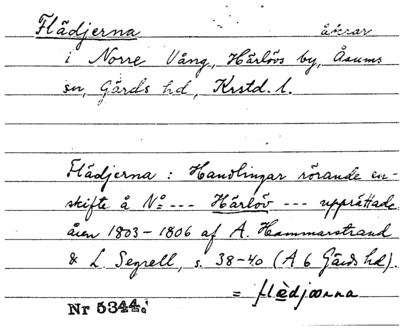 Flädjerna åkrar
i Norre Vång, Härlövs by, Åsums
sn, Gärds hd, Krstd. l.
Flädjerna : Handlingar rörande en-
skifte å No --- Härlöv --- upprättade
åren 1803-1806 af A. Hammarstrand
& L. Segrell, s. 38-40 (A 6 Gärds hd).
= flædjorna
Nr 5344.